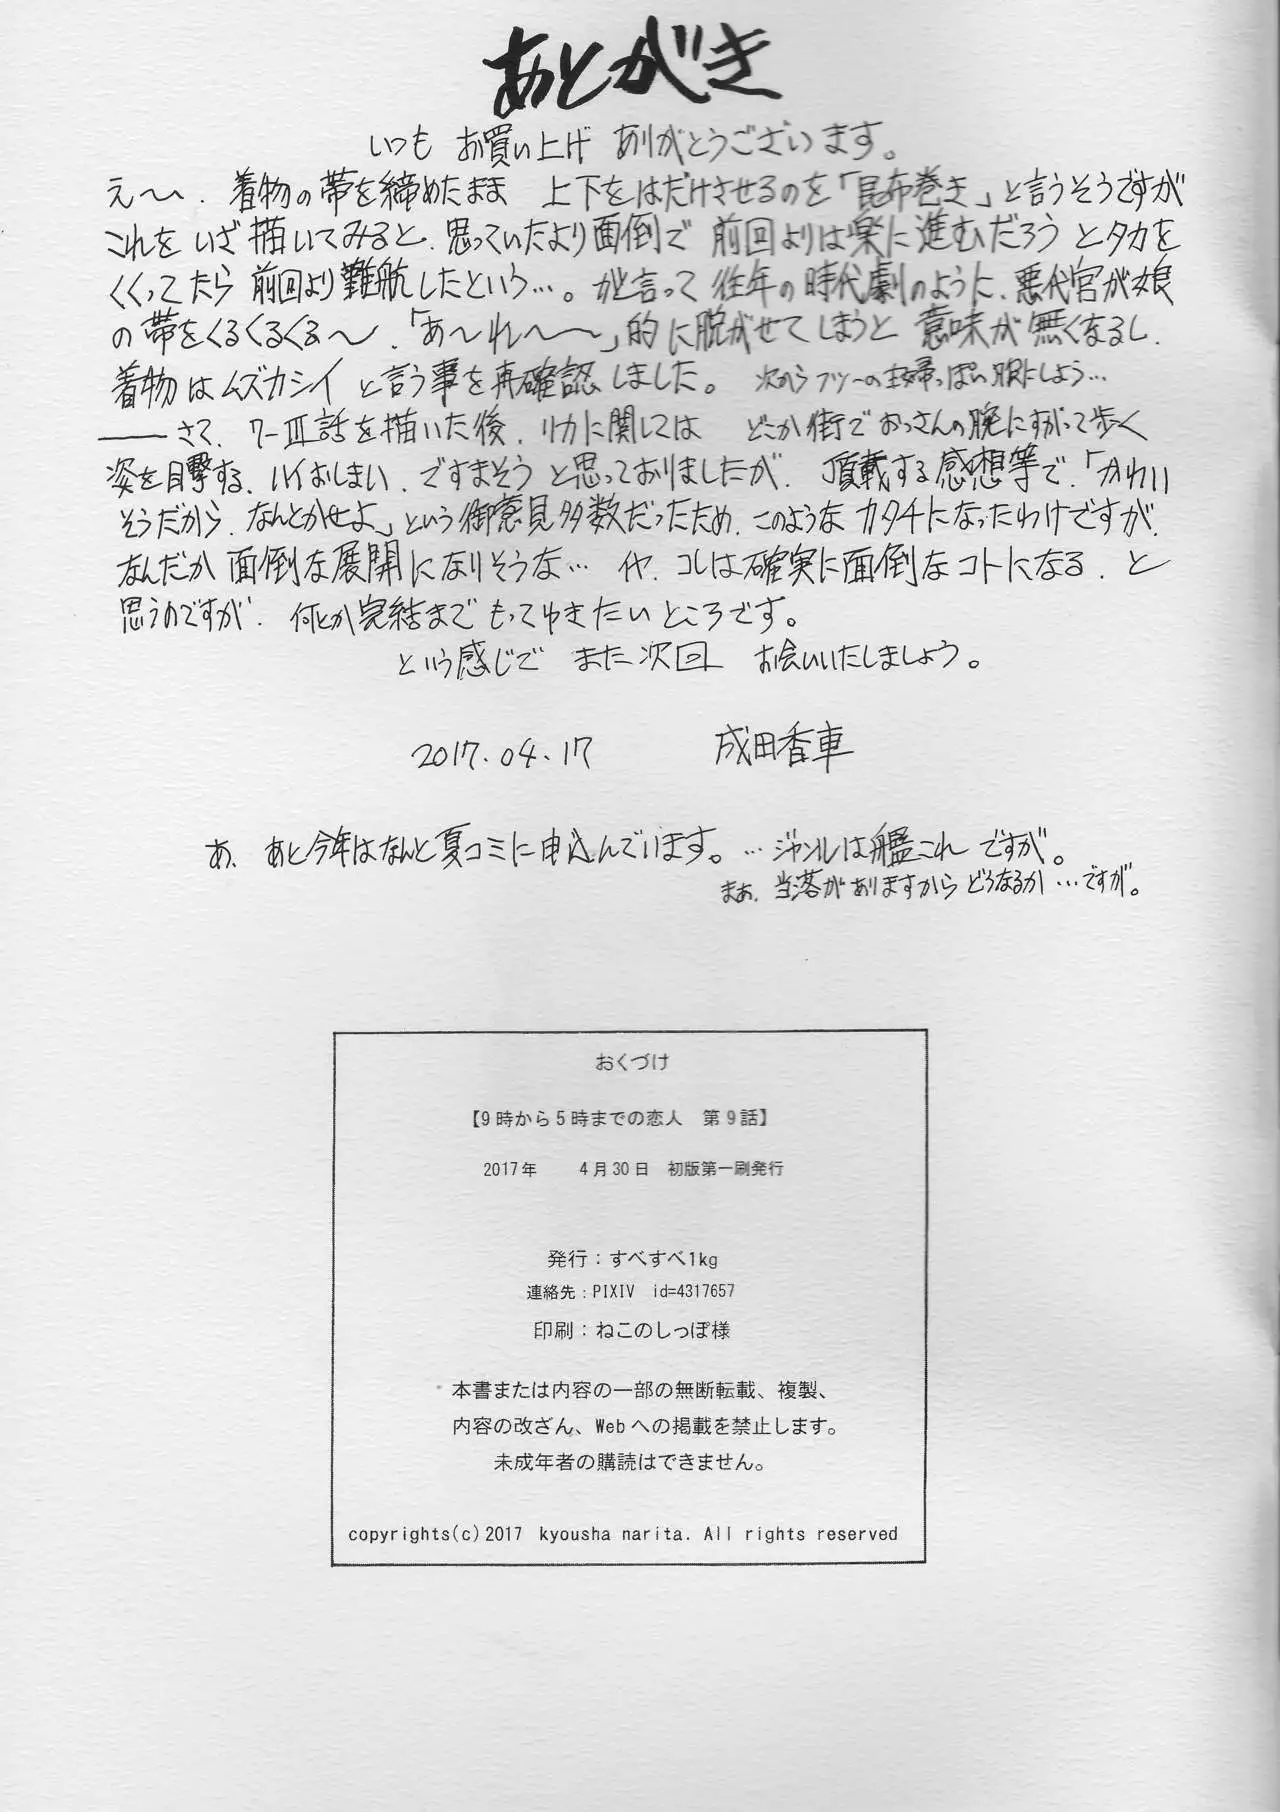 あとがき
いつも お買い上げ ありがとうございます。
え〜、着物の帯を締めたまま 上下をはだけさせるのを「昆布巻き」と言うそうですが
これを いざ 描いてみると、思っていたより面倒で 前回よりは楽に進むだろう とタカを
くくってたら 前回より難航したという…。がと言って 往年の時代劇のように、悪代官が娘
の帯をくるくるくる〜、「あ〜れ〜〜」的に脱がせてしまうと 意味が無くなるし、
着物はムズカシイ と言う事を再確認しました。 次からフツーの主婦っぽい服にしよう…
――さて、7-Ⅲ話を描いた後、リカに関しては どこか街でおっさんの腕にすがって歩く
姿を目撃する、ハイおしまい、ですまそうと思っておりましたが、頂戴する感想等で、「かわい
そうだから、なんとかせよ」という御意見多数だったため、このようなカタチになったわけですが、
なんだか面倒な展開になりそうな… イヤ、コレは確実に面倒なコトになる、と
思うのですが、何とか完結まで もってゆきたいところです。
という感じで また次回 お会いいたしましょう。
2017.04.17 成田香車
あ、あと今年はなんと夏コミに申込んでいます。…ジャンルは艦これ ですが。
まぁ、当落がありますから どうなるか…ですが。
おくづけ
【9時から5時までの恋人 第9話】
2017年 4月30日 初版第一刷発行
発行：すべすべ1kg
連絡先：PIXIV id=4317657
印刷：ねこのしっぽ様
本書または内容の一部の無断転載、複製、
内容の改ざん、Webへの掲載を禁止します。
未成年者の購読はできません。
copyrights(c)2017 kyousha narita. All rights reserved